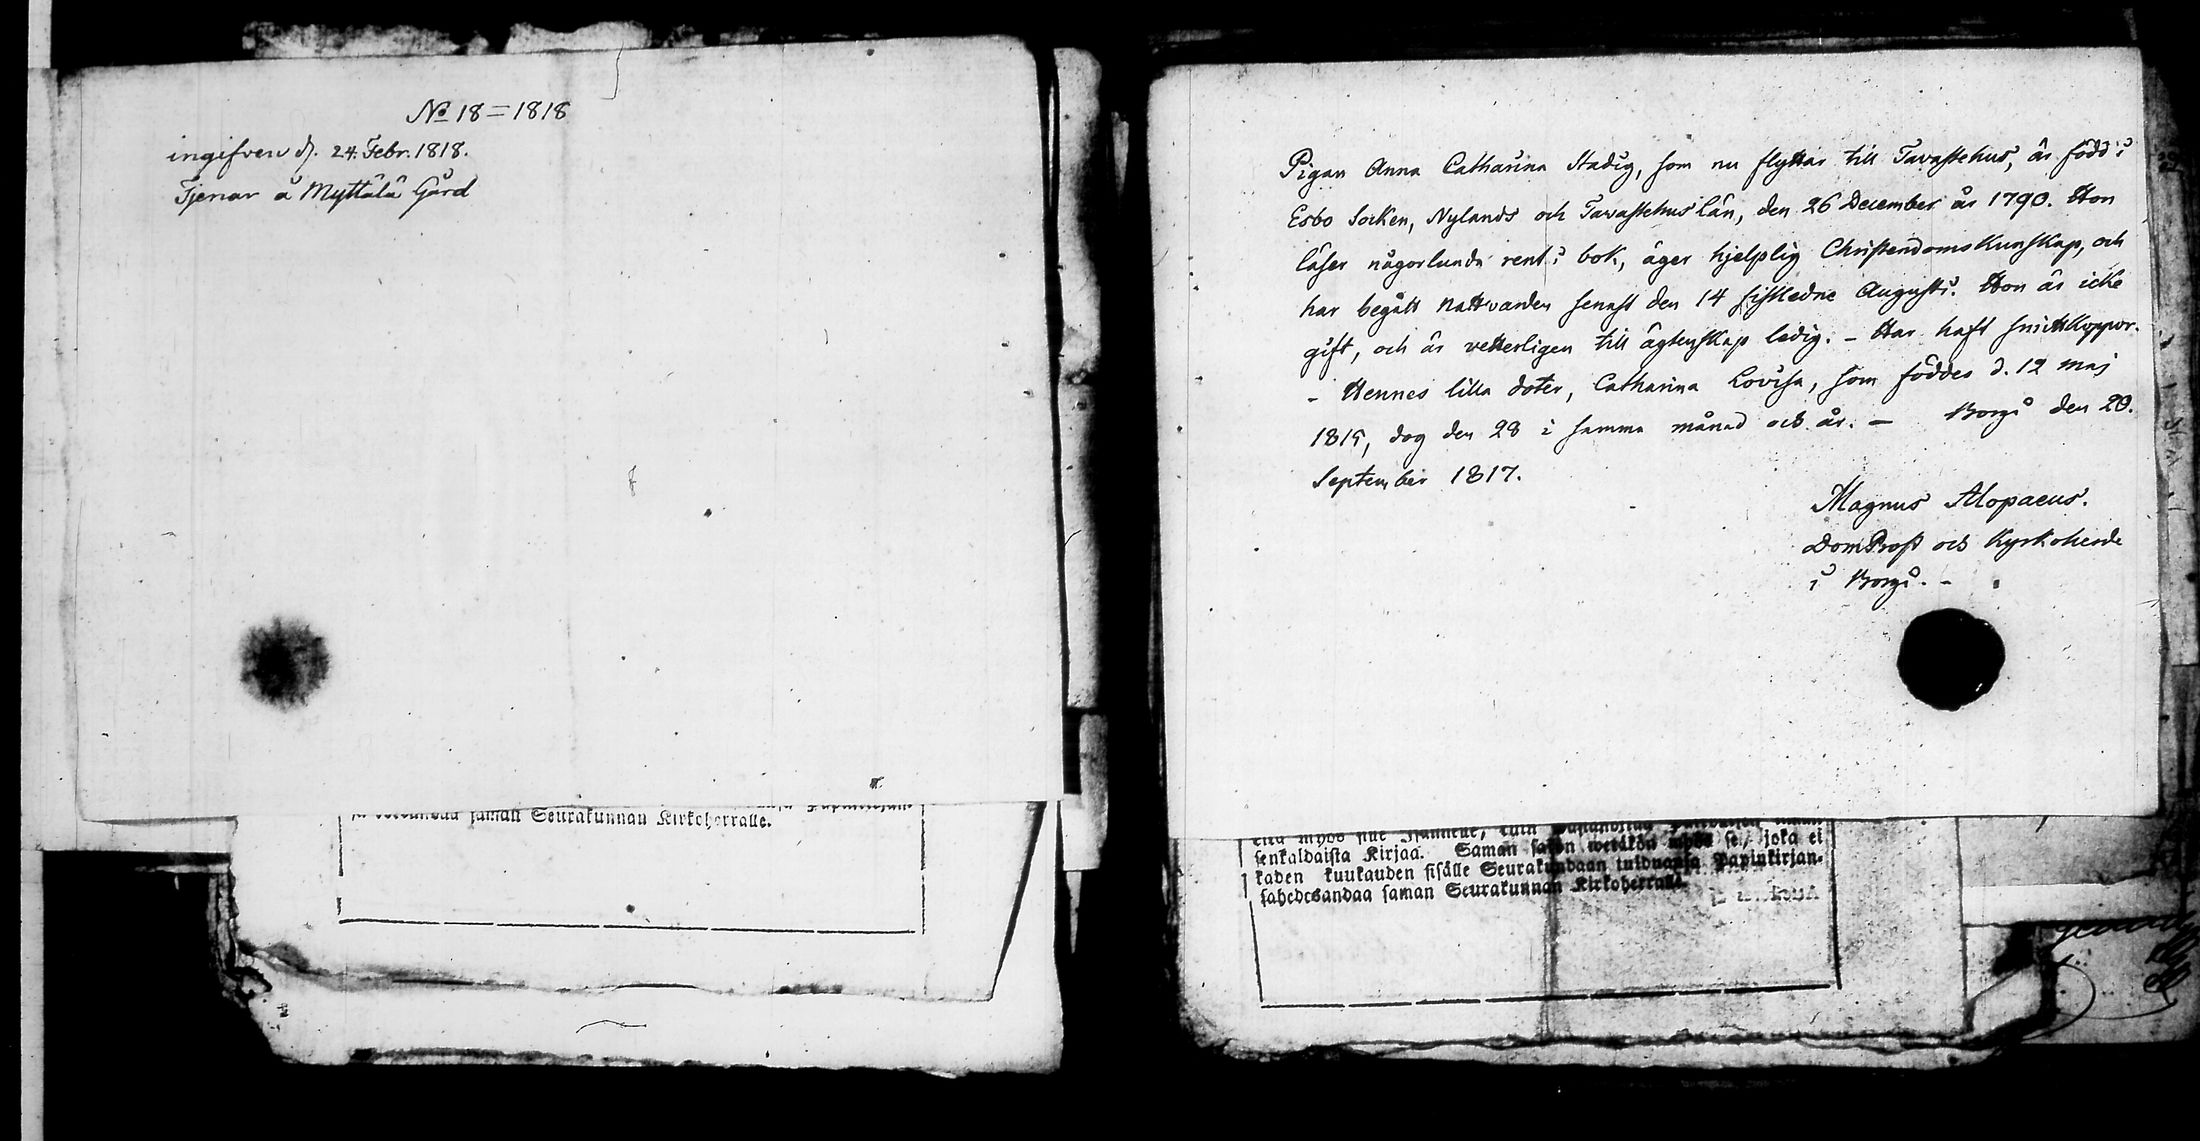 No 18 = 1818
ingifven d. 24. Febr. 1818.
Tjenar å Myttälä Gård
sa Seurakunnan Kirkoherralle.
Pigan Anna Catharina Stadig, som nu flyttar till Tavastehus, är född i
Esbo Socken, Nylands och Tavastehus län, den 26 December år 1790. Hon
läser någorlunda rent i bok, äger hjelplig Christendoms Kunskap, och
har begått Nattvarden senast den 14 sistledne Augusti. Hon är icke
gift, och är vetterligen till ägtenskap ledig. – Har haft smittkoppor.
– Hennes lilla doter, Catharina Lovisa, som föddes d. 12 maj
1815, dog den 28 i samma månad och år. – Borgå den 20.
September 1817.
Magnus Alopaeus.
DomProst och Kyrkoherde
i Borgå. –
senkaldaista Kirjaa. Saman sakon wetäkön myös se, joka ei
kaden kuukauden sisälle Seurakundaan tulduansa Papinkirjan-
sahedesandaa saman Seurakunnan Kirkoherralle.